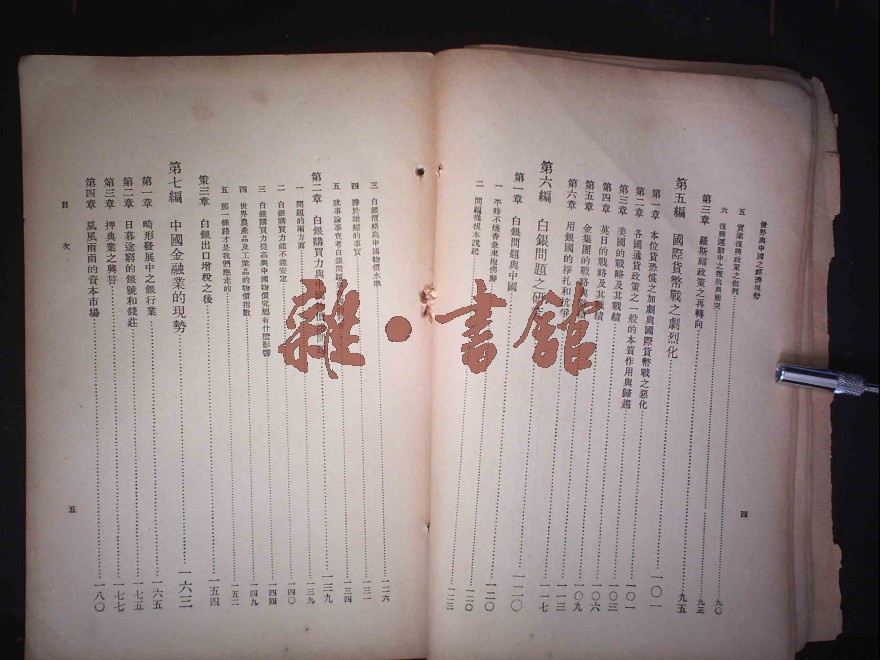 世界與中國之經濟現勢
五 實業復興政策之批判……九〇
六 復興運動中之機抗與衝突
第三章 羅斯福政策之再轉向……九三
第五編 國際貨幣戰之劇烈化……九五
第一章 本位貨恐慌之加劇與國際貨幣戰之惡化……一〇一
第二章 各國通貨政策之一般的本質作用與歸趨……一〇一
第三章 美國的戰略及其戰績……一〇三
第四章 英日的戰略及其戰績……一〇六
第五章 金集團的戰略與……一〇九
第六章 用銀國的掙扎和抗爭……一一三
第六編 白銀問題之研究……一一七
第一章 白銀問題與中國……一二〇
一 平時不燒香急來抱佛腳……一二〇
二 問題從根本說起……一二〇
……一二三
三 白銀價格與中國物價水準……一二六
四 勝於雄辯的事實……一三一
五 就事論事查考白銀問題……一三四
第二章 白銀購買力與中國……一三九
一 問題的兩方面……一三九
二 白銀購買力能不能安定……一四〇
三 白銀購買力提高與中國物價究應有什麼影響……一四九
四 世界農產品及工業品的物價指數……一四四
五 那一條路才是我們應走的……一五二
第三章 白銀出口增稅之後……一五四
第七編 中國金融業的現勢……一六三
第一章 畸形發展中之銀行業……一六五
第二章 日暮途窮的銀號和錢莊……一七五
第三章 押典業之興替……一七七
第四章 風風雨雨的資本市場……一八〇
目次
五
四
雜·書館